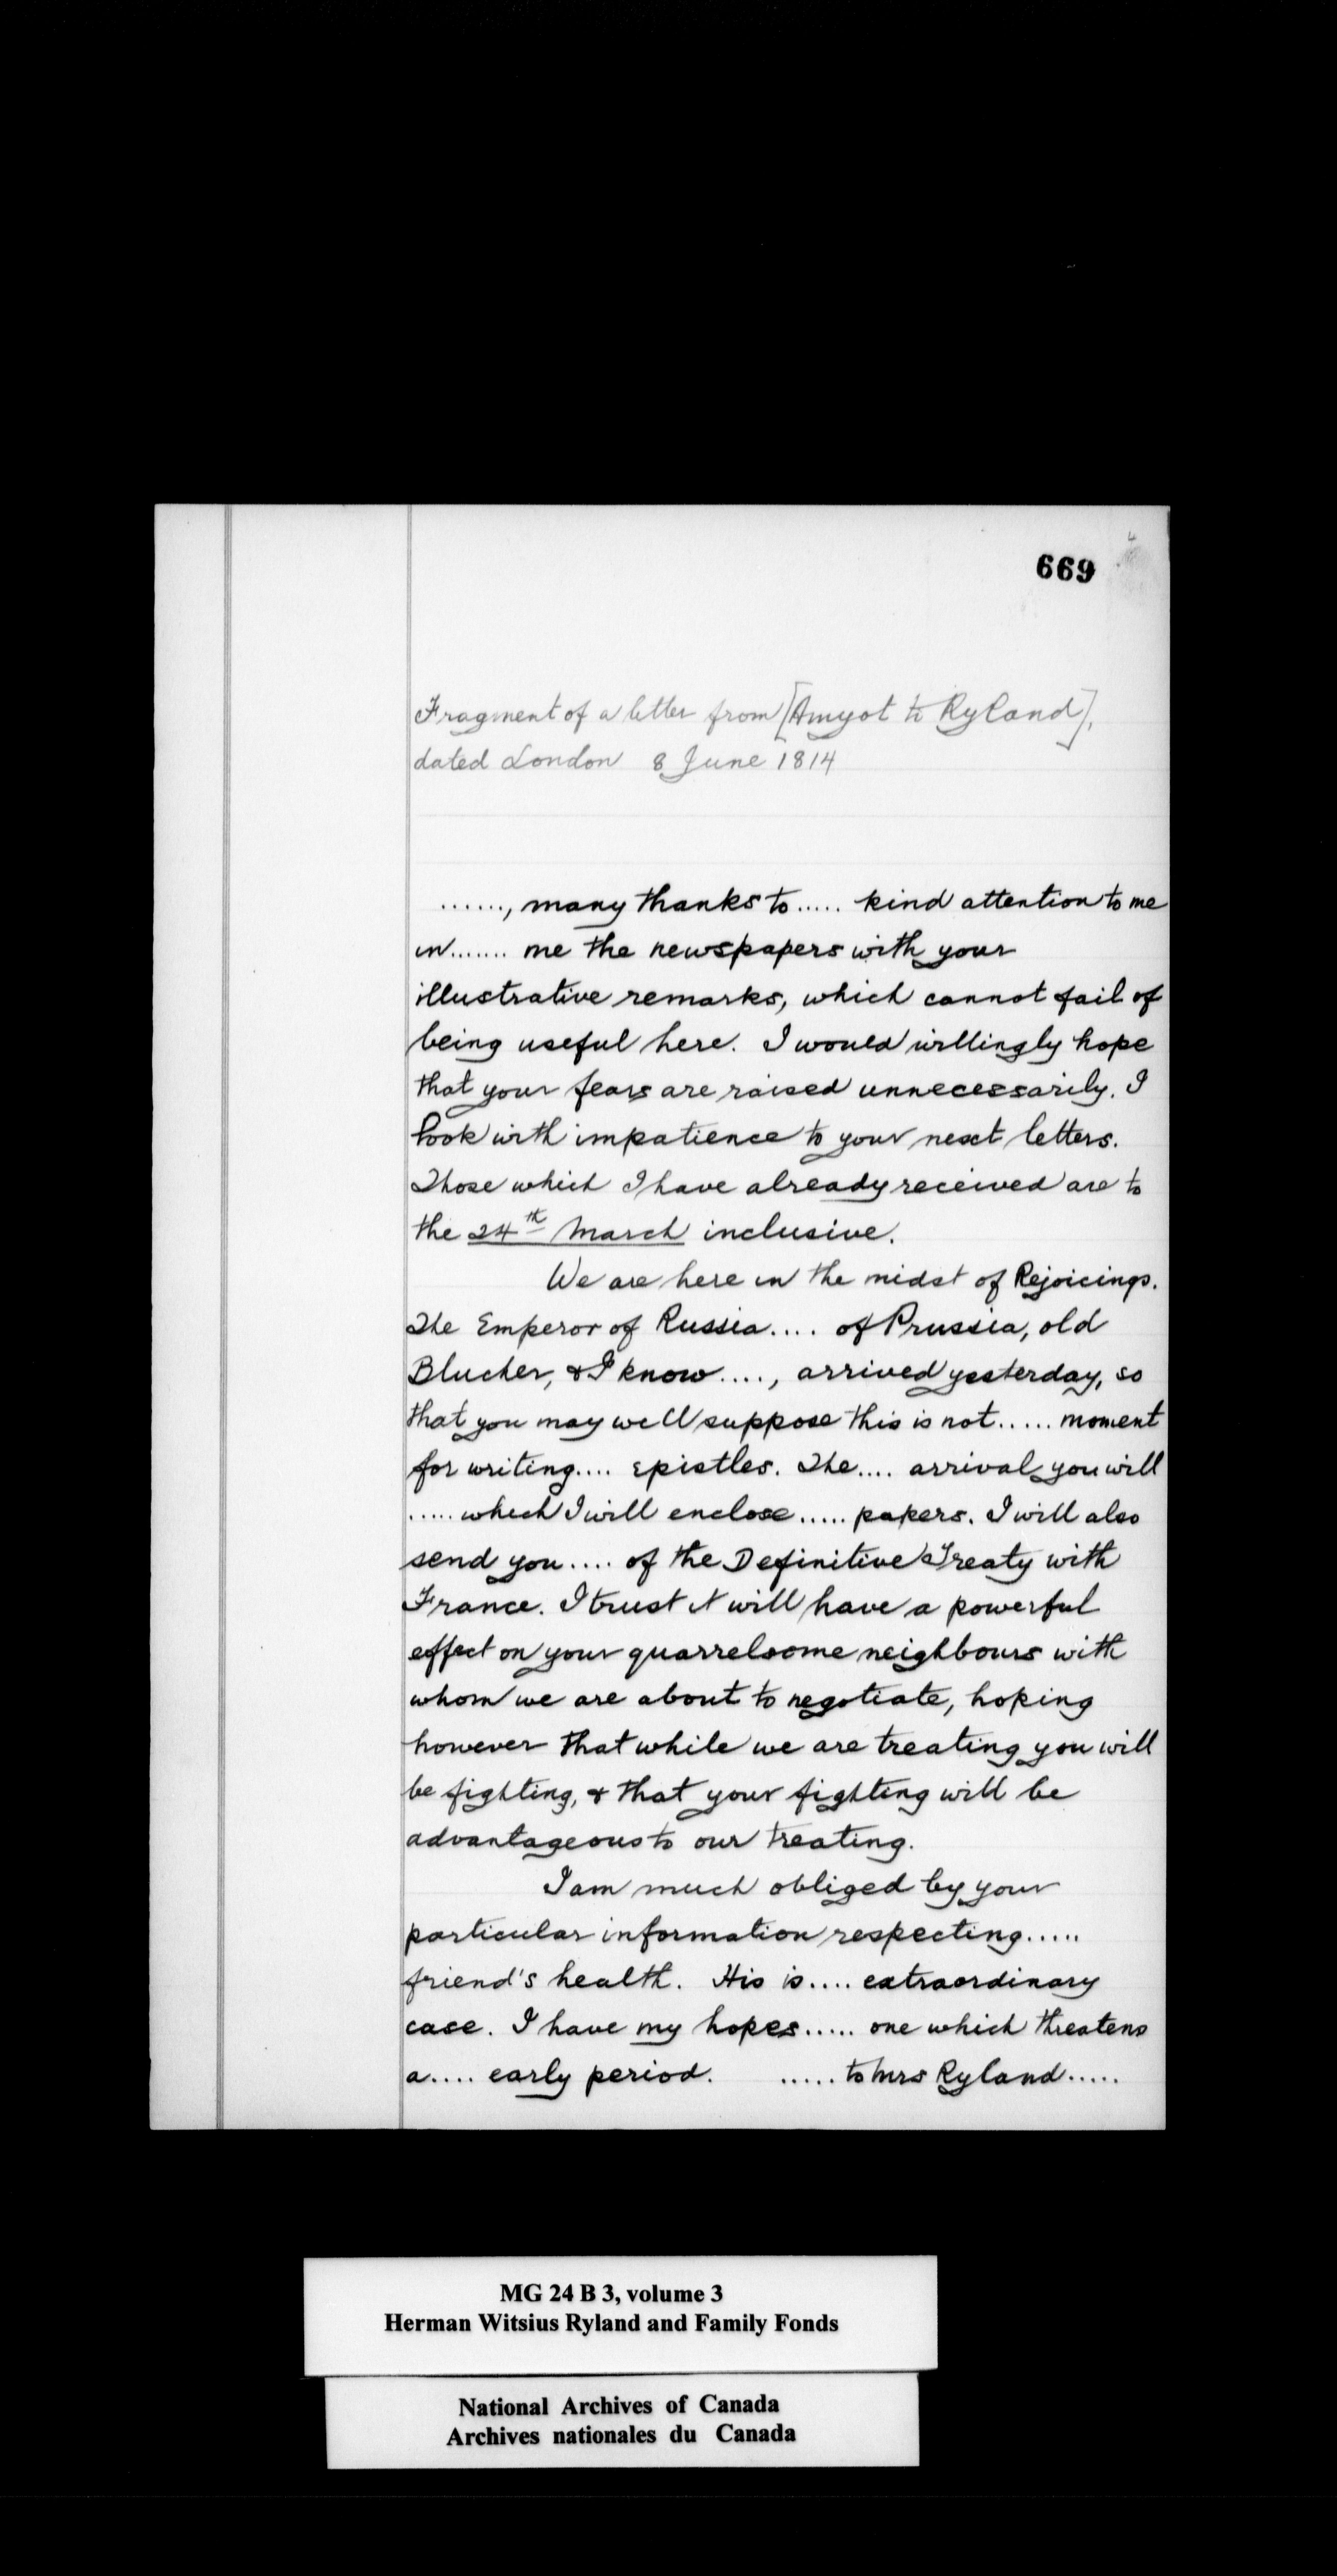 669
Fragment of a letter from [Amyot to Ryland],
dated London 8 June 1814
......, many thanks to..... kind attention to me
in....... me the newspapers with your
illustrative remarks, which cannot fail of
being useful here. I would willingly hope
that your fears are raised unnecessarily. I
look with impatience to your next letters.
Those which I have already received are to
the 24th March inclusive.
We are here in the midst of Rejoicings.
The Emperor of Russia.... of Prussia, old
Blucher, & I know...., arrived yesterday, so
that you may well suppose this is not..... moment
for writing.... epistles. The.... arrival you will
..... which I will enclose..... papers. I will also
send you.... of the Definitive Treaty with
France. I trust it will have a powerful
effect on your quarrelsome neighbours with
whom we are about to negotiate, hoping
however that while we are treating you will
be fighting, & that your fighting will be
advantageous to our treating.
I am much obliged by your
particular information respecting.....
friend's health. His is.... extraordinary
case. I have my hopes..... one which threatens
a.... early period. ..... to Mrs Ryland.....
MG 24 B 3, volume 3
Herman Witsius Ryland and Family Fonds
National Archives of Canada
Archives nationales du Canada